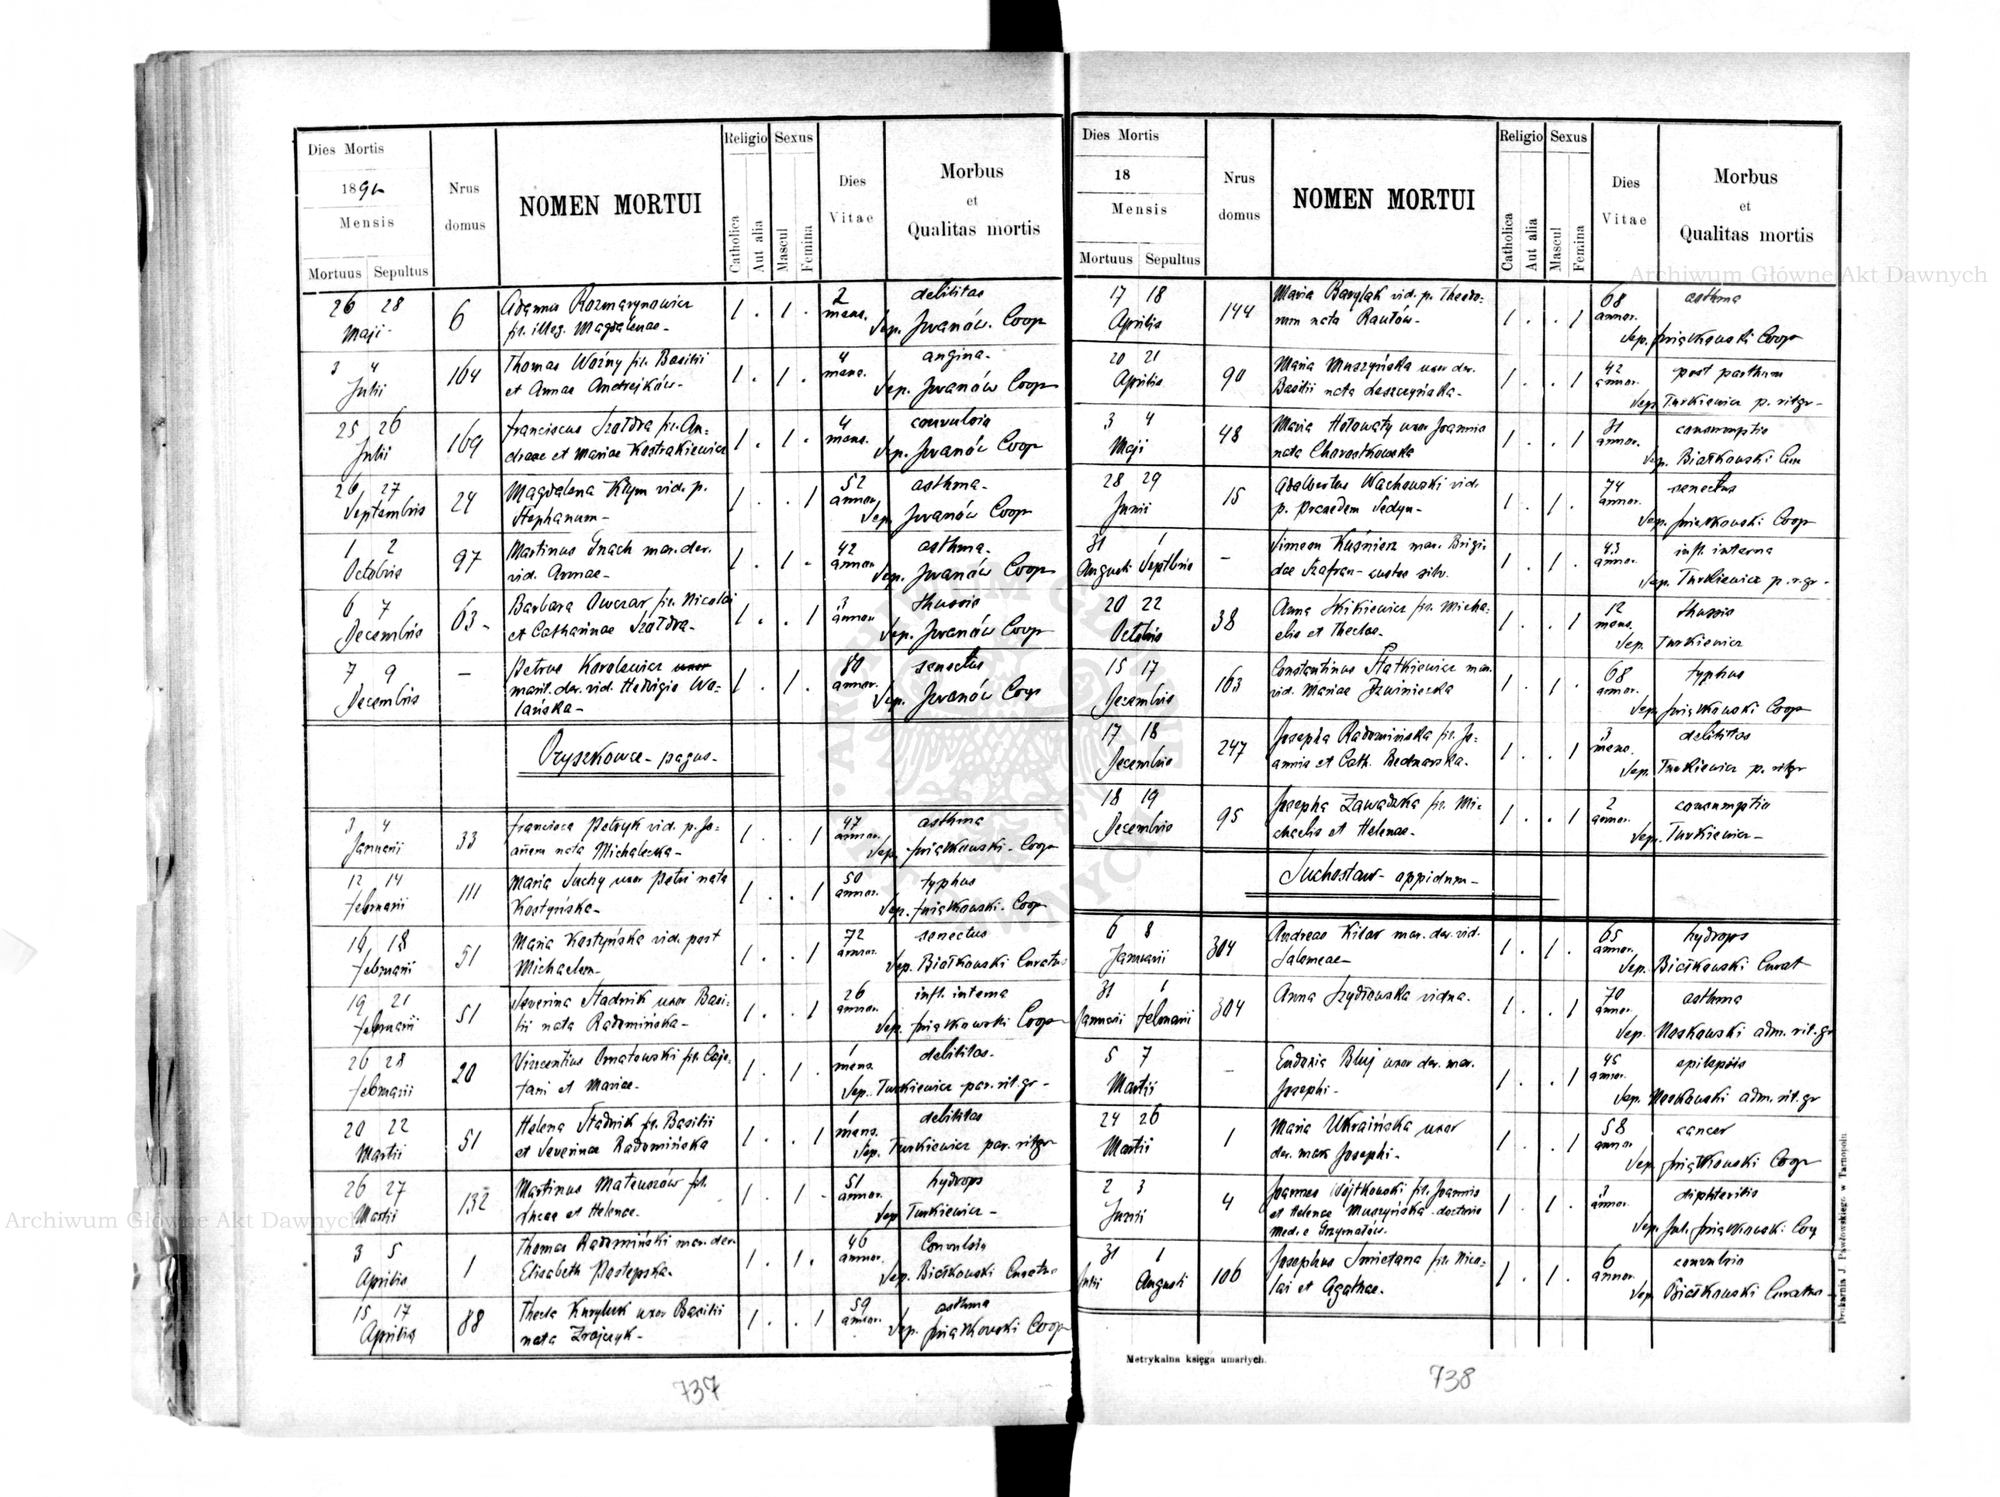 Dies Mortis
1892
Mensis
Mortuus Sepultus
Nrus domus
NOMEN MORTUI
Religio
Catholica
Aut alia
Sexus
Mascul
Femina
Dies Vitae
Morbus et Qualitas mortis
26 28 Maji 6 Adamus Rozmarynowicz 1 . 1 . 2 mens. debilitas
fil. illeg. Magdalenae - Sep. Iwanów Coop
3 4 Julii 164 Thomas Woźny fil. Basilii 1 . 1 . 4 mens. angina -
et Annae Andrejków - Sep. Iwanów Coop
25 26 Julii 169 Franciscus Szołdra fil. An- 1 . 1 . 4 mens. convulsio
dreae et Mariae Kostrakiewicz Sep. Iwanów Coop
26 27 Septembris 24 Magdalena Kłym vid. p. 1 . . 1 52 annor. asthma -
Stephanum - Sep. Iwanów Coop
1 2 Octobris 97 Martinus Gnach mar. der. 1 . 1 . 42 annor. asthma -
vid. Annae - Sep. Iwanów Coop
6 7 Decembris 63 - Barbara Owczar fil. Nicolai 1 . . 1 3 annor. thussis
et Catharinae Szołdra - Sep. Iwanów Coop
7 9 Decembris - Petrus Karolewicz uxor 1 . 1 . 80 annor. senectus
marit. der. vid. Hedvigis Wo-
lańska - Sep. Iwanów Coop
Oryszkowce - pagus -
3 4 Januarii 33 Francisca Petryk vid. p. Jo- 1 . . 1 47 annor. asthma
anem nata Michaleczka - Sep. Świątkowski - Coop
12 14 Februarii 111 Maria Suchy uxor Petri nata 1 . . 1 50 annor. typhus
Kostyńska - Sep. Świątkowski - Coop
16 18 Februarii 51 Maria Kostyńska vid. post 1 . . 1 72 annor. senectus
Michaelem - Sep. Białkowski Curatus
19 21 Februarii 51 Severina Stadnik uxor Basi- 1 . . 1 26 annor. infl. interna
lii nata Radomińska - Sep. Świątkowski Coop
26 28 Februarii 20 Vincentius Ornatowski fil. Caje- 1 . 1 . 1 mens. debilitas -
tani et Mariae - Sep. Turkiewicz par. rit. gr -
20 22 Martii 51 Helena Stadnik fil. Basilii 1 . . 1 1 mens. debilitas
et Severinae Radomińska Sep. Turkiewicz par. rit gr
26 27 Martii 132 Martinus Mateuszów fil. 1 . 1 - 51 annor. hydrops
Lucae et Helenae. Sep. Turkiewicz -
3 5 Aprilis 1 Thomas Radomiński mar. der. 1 . 1 . 46 annor. Convulsio
Elisabeth Postępska - Sep. Białkowski Curatus
15 17 Aprilis 88 Thecla Kuryluk uxor Basilii 1 . . 1 59 annor. asthma
nata Zrajczyk - Sep. Świątkowski Coop
737
Dies Mortis
18
Mensis
Mortuus Sepultus
Nrus domus
NOMEN MORTUI
Religio
Catholica
Aut alia
Sexus
Mascul
Femina
Dies Vitae
Morbus et Qualitas mortis
17 18 Aprilis 144 Maria Barylak vid. p. Theodo- 1 . . 1 68 annor. asthma
rum nata Rautów - Sep. Świątkowski Coop
20 21 Aprilis 90 Maria Muszyńska uxor der. 1 . . 1 42 annor. post parthum
Basilii nata Leszczyńska - Sep. Turkiewicz p. rit gr -
3 4 Maji 48 Maria Hołowaty uxor Joannis 1 . . 1 31 annor. consumptio
nata Chorostkowska Sep. Białkowski Cur
28 29 Junii 15 Adalbertus Wachowski vid. 1 . 1 . 74 annor. senectus
p. Praxedem Sedyn - Sep. Świątkowski Coop
31 1 Augusti Septbris - Simeon Kuśnierz mar. Brigi- 1 . 1 . 43 annor. infl. interna
dae Szafran - custos silv. Sep. Turkiewicz p. r. gr -
20 22 Octobris 38 Anna Skikiewicz fil. Micha- 1 . . 1 12 mens. thussis
elis et Theclae - Sep. Turkiewicz
15 17 Decembris 163 Constantinus Płatkiewicz mar. 1 . 1 . 68 annor. typhus
vid. Mariae Dzwiniecka Sep. Świątkowski Coop
17 18 Decembris 247 Josepha Radomińska fil. Jo- 1 . . 1 3 mens. debilitas
annis et Cath. Bednarska - Sep. Turkiewicz p. rit gr
18 19 Decembris 95 Josepha Zawadzka fil. Mi- 1 . . 1 2 annor. consumptio
chaelis et Helenae - Sep. Turkiewicz -
Suchostaw - oppidum -
6 8 Januarii 304 Andreas Kitar mar. der. vid. 1 . 1 . 65 annor. hydrops
Salomeae - Sep. Białkowski Curat
31 1 Januarii Februarii 304 Anna Szydłowska vidua. 1 . . 1 70 annor. asthma
Sep. Noskowski adm. rit. gr
5 7 Martii - Eudoxia Bluj uxor der. mar. 1 . . 1 45 annor. epilepsis
Josephi - Sep. Noskowski adm. rit. gr
24 26 Martii 1 Maria Ukraińska uxor 1 . . 1 58 annor. cancer
der. mar. Josephi - Sep. Świątkowski Coop
2 3 Junii 4 Joannes Wojtkowski fil. Joannis 1 . 1 . 3 annor. diphteritis
et Helenae Muszyńska - doctoris
med. e Grzymałów. Sep. Jul. Świątkowski Coop
31 1 Julii Augusti 106 Josephus Smietana fil. Nico- 1 . 1 . 6 annor. convulsio
lai et Agathae. Sep. Białkowski Curatus -
Metrykalna księga umarłych.
Drukarnia J. Pawłowskiego w Tarnopolu
738
Archiwum Główne Akt Dawnych
Archiwum Główne Akt Dawnych